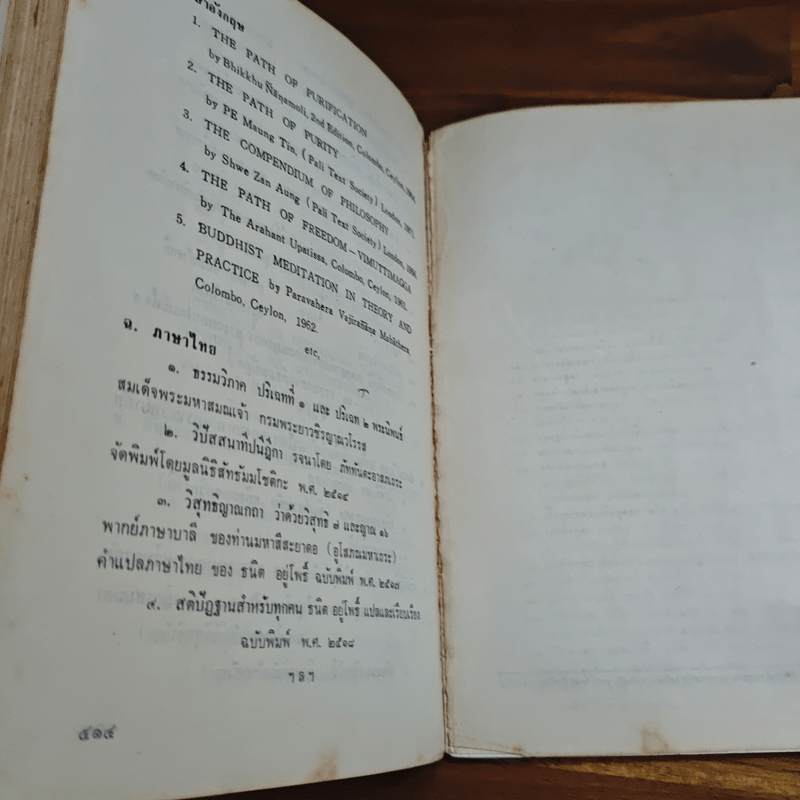 ษาอังกฤษ
1. THE PATH OF PURIFICATION
by Bhikkhu Ñāṇamoli, 2nd Edition, Colombo, Ceylon, 1964.
2. THE PATH OF PURITY
by PE Maung Tin, ( Pali Text Society ) London, 1971.
3. THE COMPENDIUM OF PHILOSOPHY
by Shwe Zan Aung ( Pali Text Society ) London,
4. THE PATH OF FREEDOM – VIMUTTIMAGGA
by The Arahant Upatissa, Colombo, Ceylon, 1961.
5. BUDDHIST MEDITATION IN THEORY AND
PRACTICE by Paravahera Vajirañāṇa Mahāthera,
Colombo, Ceylon, 1962.
etc,
ฉ. ภาษาไทย
๑. ธรรมวิภาค ปริเฉทที่ ๑ และ ปริเฉท ๒ พระนิพนธ์
สมเด็จพระมหาสมณเจ้า กรมพระยาวชิรญาณวโรรส
๒. วิปัสสนาทีปนีฎีกา รจนาโดย ภัททันตะอาสภเถระ
จัดพิมพ์โดยมูลนิธิสัทธัมมโชติกะ พ.ศ. ๒๕๑๔
๓. วิสุทธิญาณกถา ว่าด้วยวิสุทธิ ๗ และญาณ ๑๖
พากย์ภาษาบาลี ของท่านมหาสีสะยาดอ (อูโสภณมหาเถระ)
คำแปลภาษาไทย ของ ธนิต อยู่โพธิ์ ฉบับพิมพ์ พ.ศ. ๒๕๑๘
๔. สติปัฏฐานสำหรับทุกคน ธนิต อยู่โพธิ์ แปลและเรียบเรียง
ฉบับพิมพ์ พ.ศ. ๒๕๑๘
ฯลฯ
๕๑๔